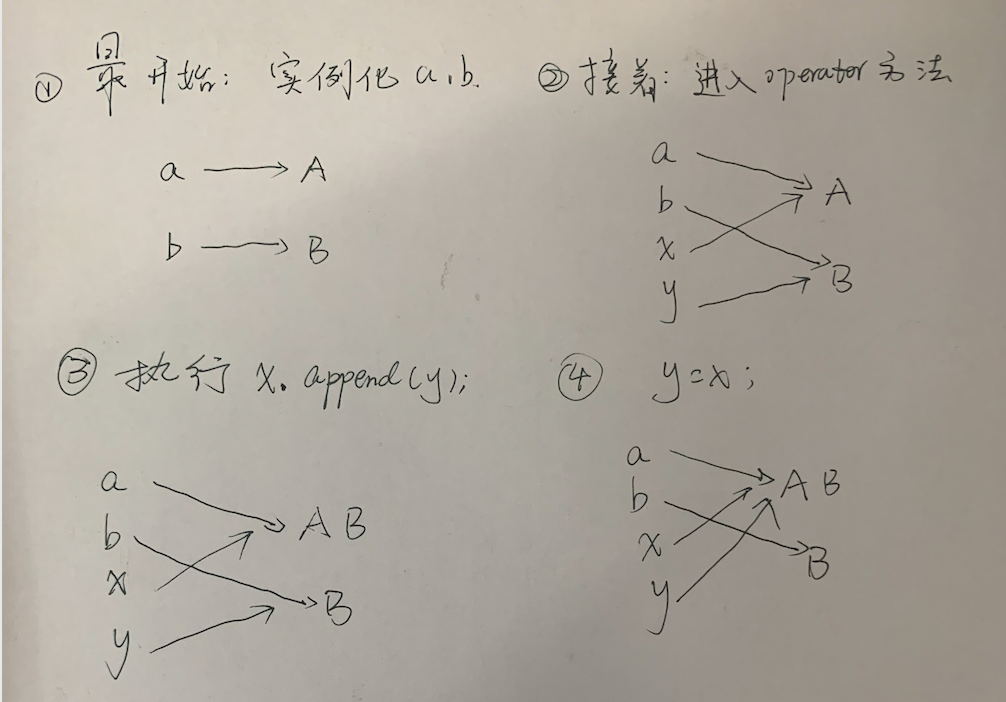 ① 最开始: 实例化 a、b.
a → A
b → B
② 接着: 进入operator方法
a
b
x
y
A
B
③ 执行 x.append(y);
a
b
x
y
A B
B
④ y=x;
a
b
x
y
A B
B